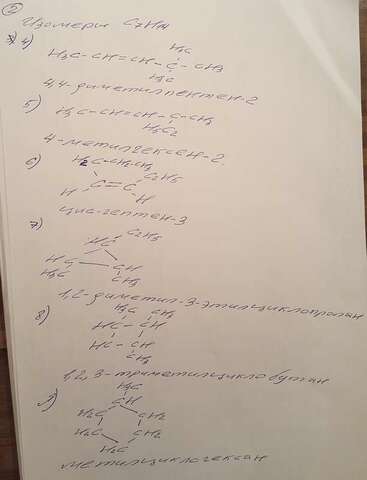 ②
Изомеры C7H14
4)
H3C
H3C-CH=CH-C-CH3
H3C
4,4-диметилпентен-2
5)
H3C-CH=CH-C-CH3
H5C2
4-метилгексен-2
6)
H2C-CH2CH3
C2H5
C=C
H
H
цис-гептен-3
7)
C2H5
HC
HC
CH
H3C
CH3
1,2-диметил-3-этилциклопропан
8)
H3C CH3
HC-CH
HC-CH
CH3
1,2,3-триметилциклобутан
H3C
CH
H2C CH2
H2C CH2
H2C
метилциклогексан